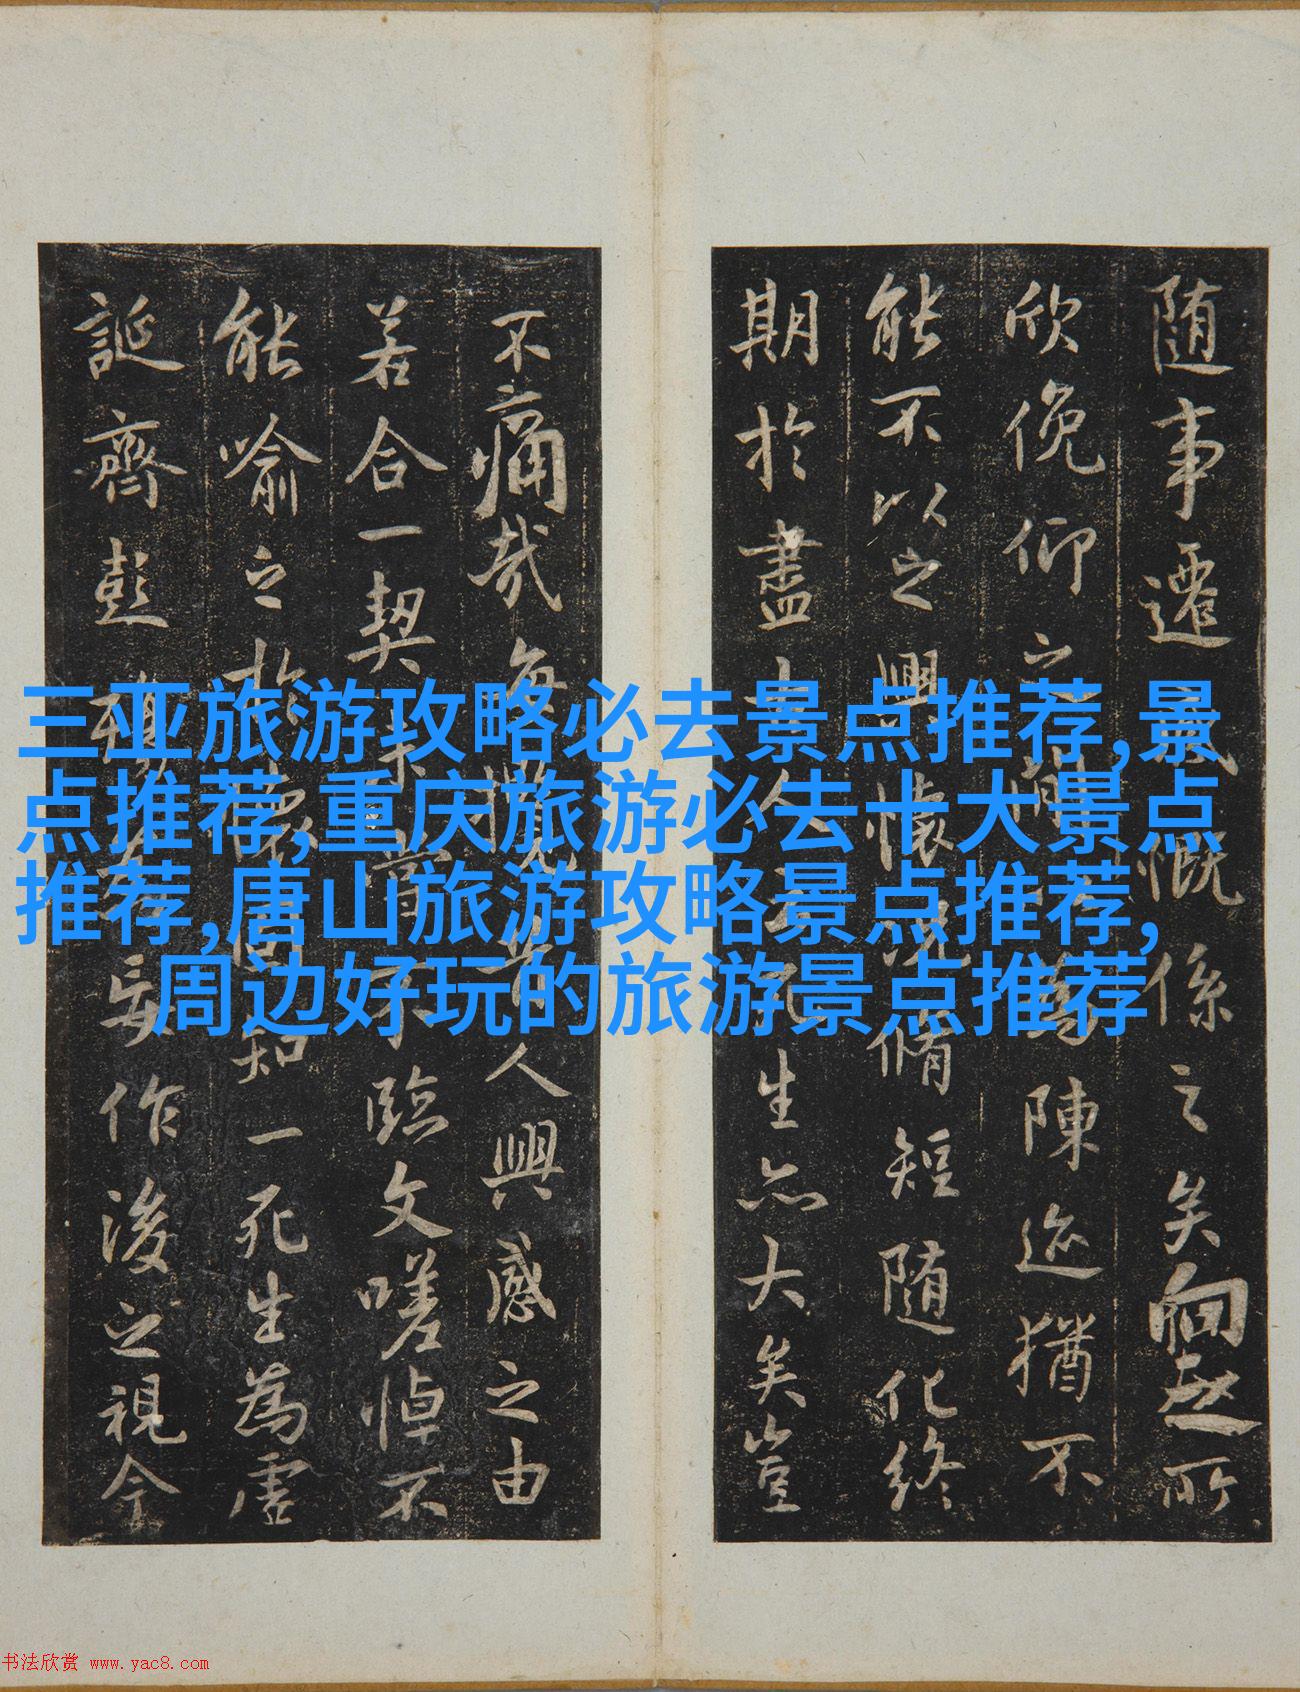 随事遷感慨係之矣向之所
欣俛仰之間以為陳迹猶不
能不以之興懷況脩短随化終
期於盡古人云死生亦大矣豈
不痛哉每攬昔人興感之由
若合一契未嘗不臨文嗟悼不
能喻之於懷固知一死生為虛
誕齊彭殤為妄作後之視今
三亚旅游攻略必去景点推荐,景
点推荐,重庆旅游必去十大景点
推荐,唐山旅游攻略景点推荐,
周边好玩的旅游景点推荐
书法欣赏 www.yac8.com